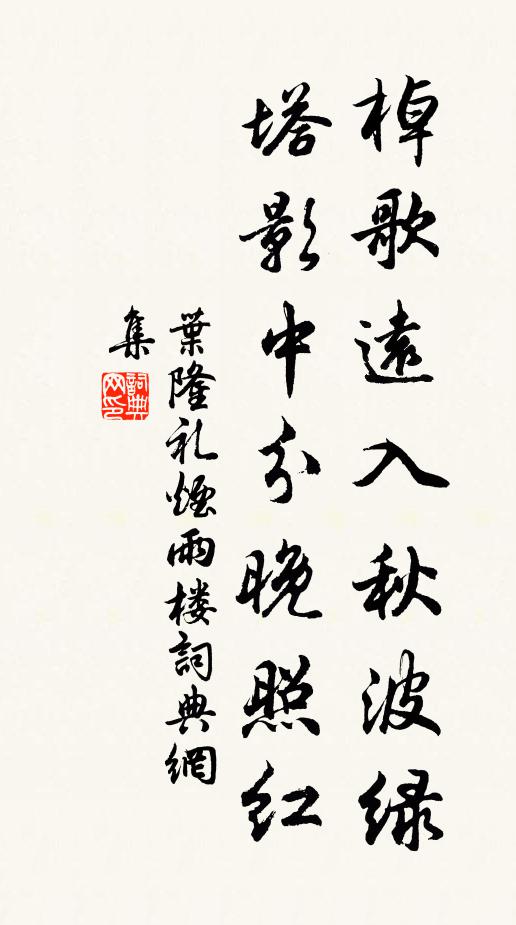 棹歌遠入秋波绿
塔影中分晚照红
葉隆礼煙雨楼詞典網
集
詞典
网印